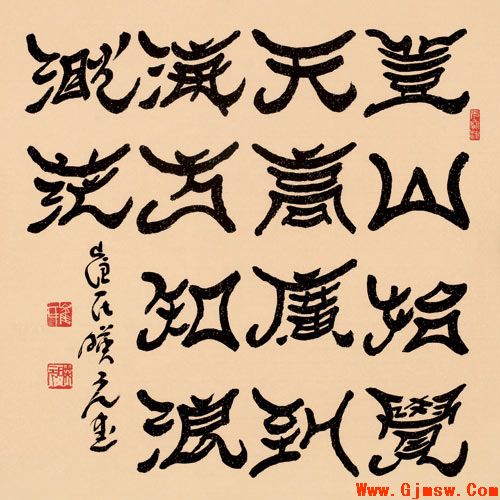 登山始覺
天高廣到
海方知浪
渺茫
Www.Gjmsw.Com